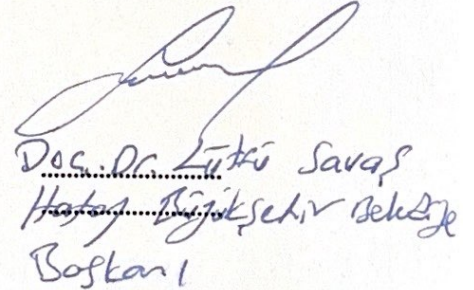 Doç. Dr. Lütfü Savaş
Hatay Büyükşehir Belediye
Başkanı